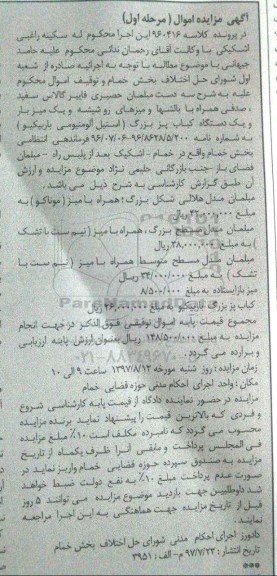 آگهی مزایده اموال ( مرحله اول)
در پرونده کلاسه ۹۶۰۴۱۶ این اجرا محکوم له سکینه راغبی
اشکیکی با وکالت آقای رحمان ندائی محکوم علیه حامد
جهانی با موضوع مطالبه با توجه به اجرائیه صادره از شعبه
اول شورای حل اختلاف بخش خمام و توقیف اموال محکوم
علیه به شرح سه دست مبلمان حصیری فایبر گلاس سفید
، صدفی همراه با بالشتها و میزهای رو شیشه و یک میز بار
و یک دستگاه کباب پز بزرگ ( استیل آلومنیومی باربیکیو )
به شماره نامه ۹۶/۰۷/۰۶-۹۶/۸۶۲۸/۵/۲۰۰ فرماندهی انتظامی
بخش خمام واقع در خمام - اشکیک بعد از پلیس راه - مبلمان
فضای باز -جنب بازرگانی حلیمی نژاد موضوع مزایده و ارزش
آن طبق گزارش کارشناسی به شرح ذیل می باشد .
مبلمان مدل هلالی شکل بزرگ ؛ همراه با میز ( موناکو ) به
مبلغ ریال
مبلمان مدل مسطح بزرگ ، همراه با میز ( نیم ست با تشک
) به مبلغ ۳۸.۰۰۰.۰۰۰ ریال
مبلمان مبل مسطح متوسط همراه با میز ( نیم ست با
تشک ) به مبلغ ۳۴/۰۰۰/۰۰۰ ریال
میز بار ایستاده به مبلغ ۸/۵۰۰/۰۰۰
کباب پز بزرگ باربیکیو به مبلغ ریال
مجموع قیمت پایه اموال توقیفی فوق الذکر در جهت انجام
مزایده به مبلغ ۱۴۸/۵۰۰/۰۰۰ ریال بعنوان ارزش پایه ارزیابی
و برآورده می گردد.
زمان مزایده : روز شنبه مورخه ۱۳۹۷/۸/۱۲ ساعت ۹ الی ۱۰
مکان : واحد اجرای احکام مدنی حوزه قضایی خمام
مزایده در حضور نماینده دادگاه از قیمت پایه کارشناسی شروع
و فردی که بالاترین قیمت را پیشنهاد نماید برنده مزایده
محسوب می گردد که نامبرده مکلف است ۱۰٪ مبلغ مزایده
فی المجلس پرداخت و مابقی آنرا ظرف یکماه از تاریخ
مزایده به صندوق سپرده حوزه قضایی خمام واریز نماید در
صورت عدم پرداخت مبلغ ۱۰٪ به نفع دولت ضبط خواهد
شد داوطلبین جهت بازدید موضوع مزایده می توانند ۵ روز
قبل از تاریخ مزایده جهت هماهنگی به این اجرا مراجعه
نمایند.
دادورز اجرای احکام مدنی شورای حل اختلاف بخش خمام
تاریخ انتشار : ۹۷/۷/۲۲ م - الف : ۳۹۵۱